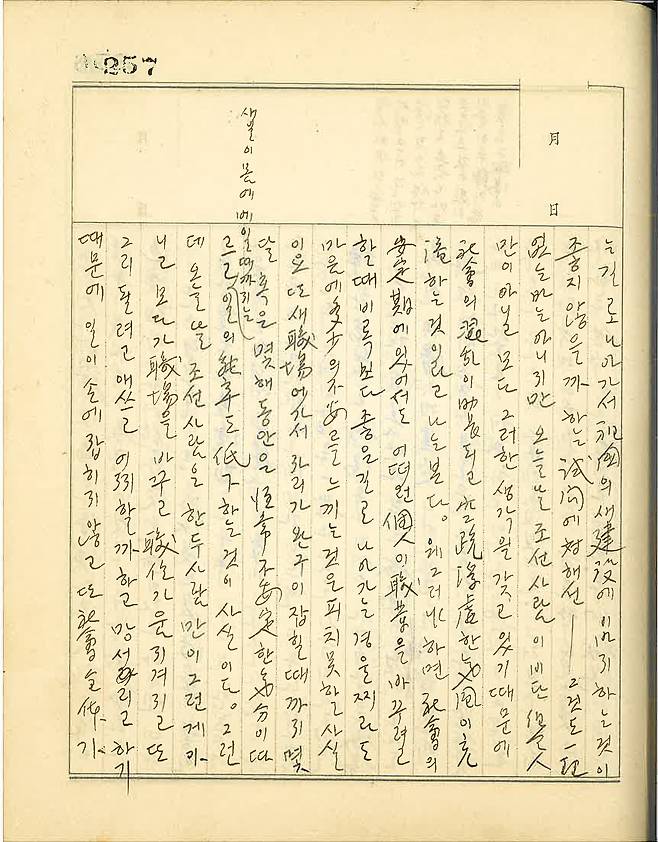 257
月
日
는 길로 나아가서 祖國의 새 建設에 이바지하는 것이
좋지 않을까 하는 試問에 對해선 ── 그것도 一理
없는 바는 아니지만 오늘날 조선사람이 비단 個人
만이 아닐 모다 그러한 생각을 갖고 있기 때문에
社會의 混亂이 助長되고 空疎浮虛한 氣風이 充
滿하는 것이라고 나는 본다。 왜그러냐 하면 社會의
安定期에 있어서도 어떠한 個人이 職業을 바꾸려
할 때 비록 보다 좋은 길로 나아가는 경울찌라도
마음에 多少의 不安을 느끼는 것은 피치 못할 사실
이요 또 새 職場에 가서 자리가 완구이 잡힐 때까지 몇
달 혹은 몇 해 동안은 恒常 不安定한 氣分이 따
르고 샐일이 몸에 베일때까지는 일의 能率도 低下하는 것이 사실이다。 그런
데 오늘날 조선사람은 한두 사람만이 그런게 아
니고 모다가 職場을 바꾸고 職位가 움지겨지고 또
그리 될려고 애쓰고 어찌할까 하고 망서리고 하기
때문에 일이 손에 잡히지 않고 또 社會全体가